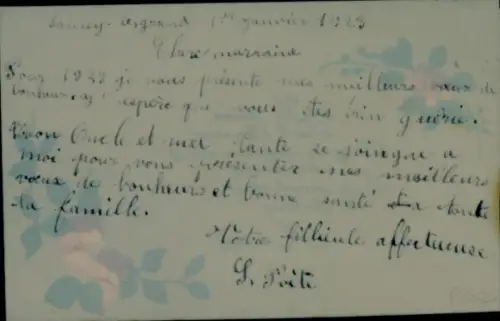 1er janvier 1929
Chère marraine
Pour 1929 je vous présente mes meilleurs vœux de
bonheur, espère que vous êtes bien guérie.
Mon Oncle et ma tante se joingue a
moi pour vous présenter mes meilleurs
vœux de bonheurs et bonne santé a toute
ta famille.
Votre fillieule affectueuse